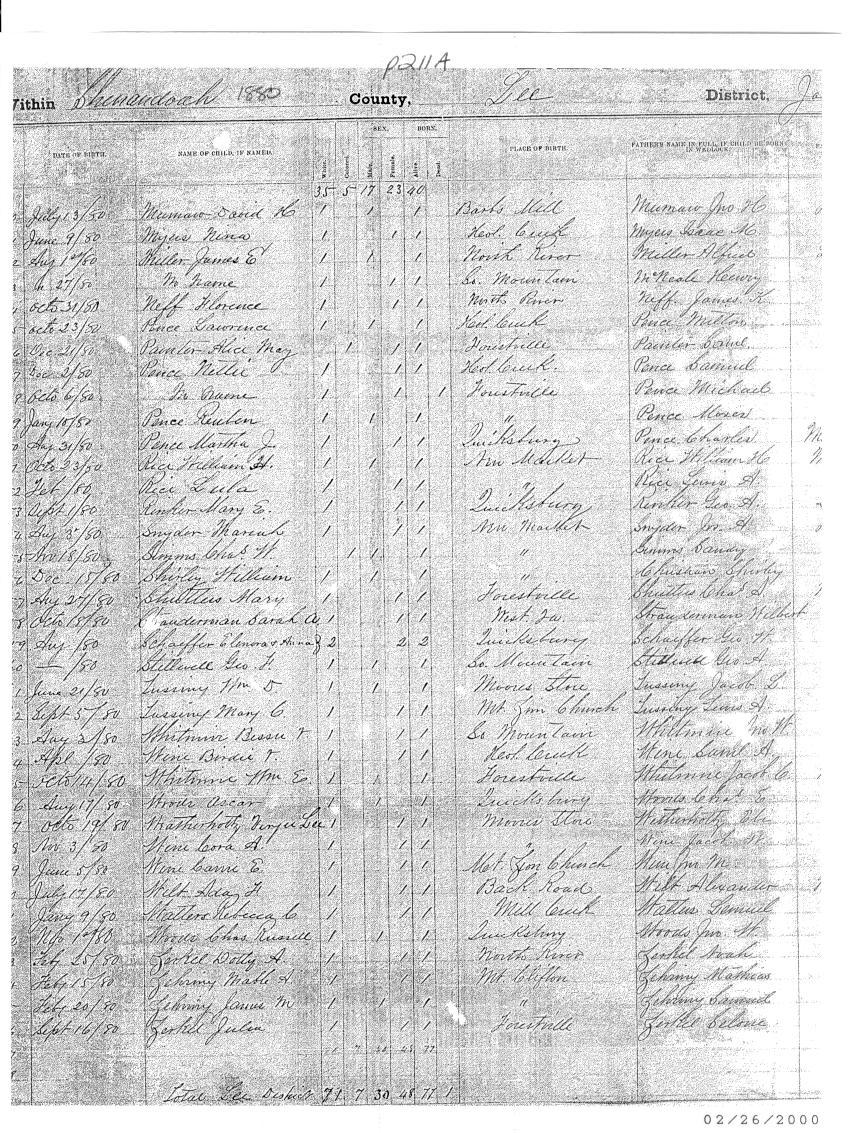 p211A
Within Shenandoah 1880 County, Lee District,
DATE OF BIRTH. NAME OF CHILD, IF NAMED. White. Colored. SEX. Male. Female. BORN. Alive. Dead. PLACE OF BIRTH. FATHER'S NAME IN FULL, IF CHILD BE BORN IN WEDLOCK.
35 5 17 23 40
July 13/80 Mumaw David H 1 1 1 Barbs Mill Mumaw Jno H
June 9/80 Myers Nina 1 1 1 Hol. Creek Myers Isaac M
Aug 1st/80 Miller James E 1 1 1 North River Miller Alfred
27/80 No Name 1 1 1 So. Mountain McNeale Henry
Octo 31/80 Neff Florence 1 1 1 North River Neff James K.
Octo 23/80 Pence Lawrence 1 1 1 Hol. Creek Pence Milton
Dec 21/80 Painter Alice May 1 1 1 Forestville Painter Saml.
Dec 2/80 Pence Nettie 1 1 1 Hol Creek. Pence Samuel
Octo 6/80 No Name 1 1 1 Forestville Pence Michael
Jany 10/80 Pence Reuben 1 1 1 " Pence Moses
Aug 31/80 Pence Martha J. 1 1 1 Quicksburg Pence Charles
Octo 23/80 Rice William H. 1 1 1 New Market Rice William H
Feb /80 Rice Lula 1 1 1 " Rice Lewis A.
Sept 1/80 Rinker Mary E. 1 1 1 Quicksburg Rinker Geo. A.
Aug 3/80 Snyder Mariah 1 1 1 New Market Snyder Jos. A.
Nov 18/80 Simms Chas W. 1 1 1 " Simms Sandy
Dec 15/80 Shirley William 1 1 1 " Christian Shirley
Aug 27/80 Shuttus Mary 1 1 1 Forestville Shuttus Chas. A.
Octo 18/80 Strauderman Sarah A. 1 1 1 West. Va. Strauderman Wilbert
Aug /80 Schaeffer Elenora & Anna 2 2 2 Quicksburg Schaeffer Geo W.
— /80 Stillwell Geo. F. 1 1 1 So. Mountain Stillwell Geo A
June 21/80 Tussing Wm D. 1 1 1 Moores Store Tussing Jacob L.
Sept 5/80 Tussing Mary C 1 1 1 Mt Zion Church Tussing Lewis A.
Aug 2/80 Whitmire Bessie V. 1 1 1 So Mountain Whitmire Jno W.
Apl /80 Wine Birdie V. 1 1 1 Hol. Creek Wine Saml A.
Octo 14/80 Whitmire Wm E. 1 1 1 Forestville Whitmire Jacob C.
Aug 17/80 Woods Oscar 1 1 1 Quicksburg Woods Chas. E
Octo 19/80 Weatherholtz Virgie Lee 1 1 1 Moores Store
Nov 3/80 Wine Cora A. 1 1 1 " Wine Jacob W.
June 5/80 Wine Carrie E. 1 1 1 Mt Zion Church Wine Jno M.
July 17/80 Wilt Ada F 1 1 1 Back Road Wilt Alexander
Jany 9/80 Watters Rebecca C 1 1 1 Mill Creek Watters Lemuel
1st/80 Woods Chas. Russell 1 1 1 Quicksburg Woods Jno. W.
Feby 25/80 Zerkel Dotty A. 1 1 1 North River Zerkel Noah
Feby 15/80 Zehring Mable A 1 1 1 Mt Clifton Zehring Mathias
Feby 20/80 Zehring M 1 1 1 " Zehring Samuel
Sept 16/80 Zerkel Julia 1 1 1 Forestville Zerkel
Total Lee District 71 7 30 48 77 1
02/26/2000